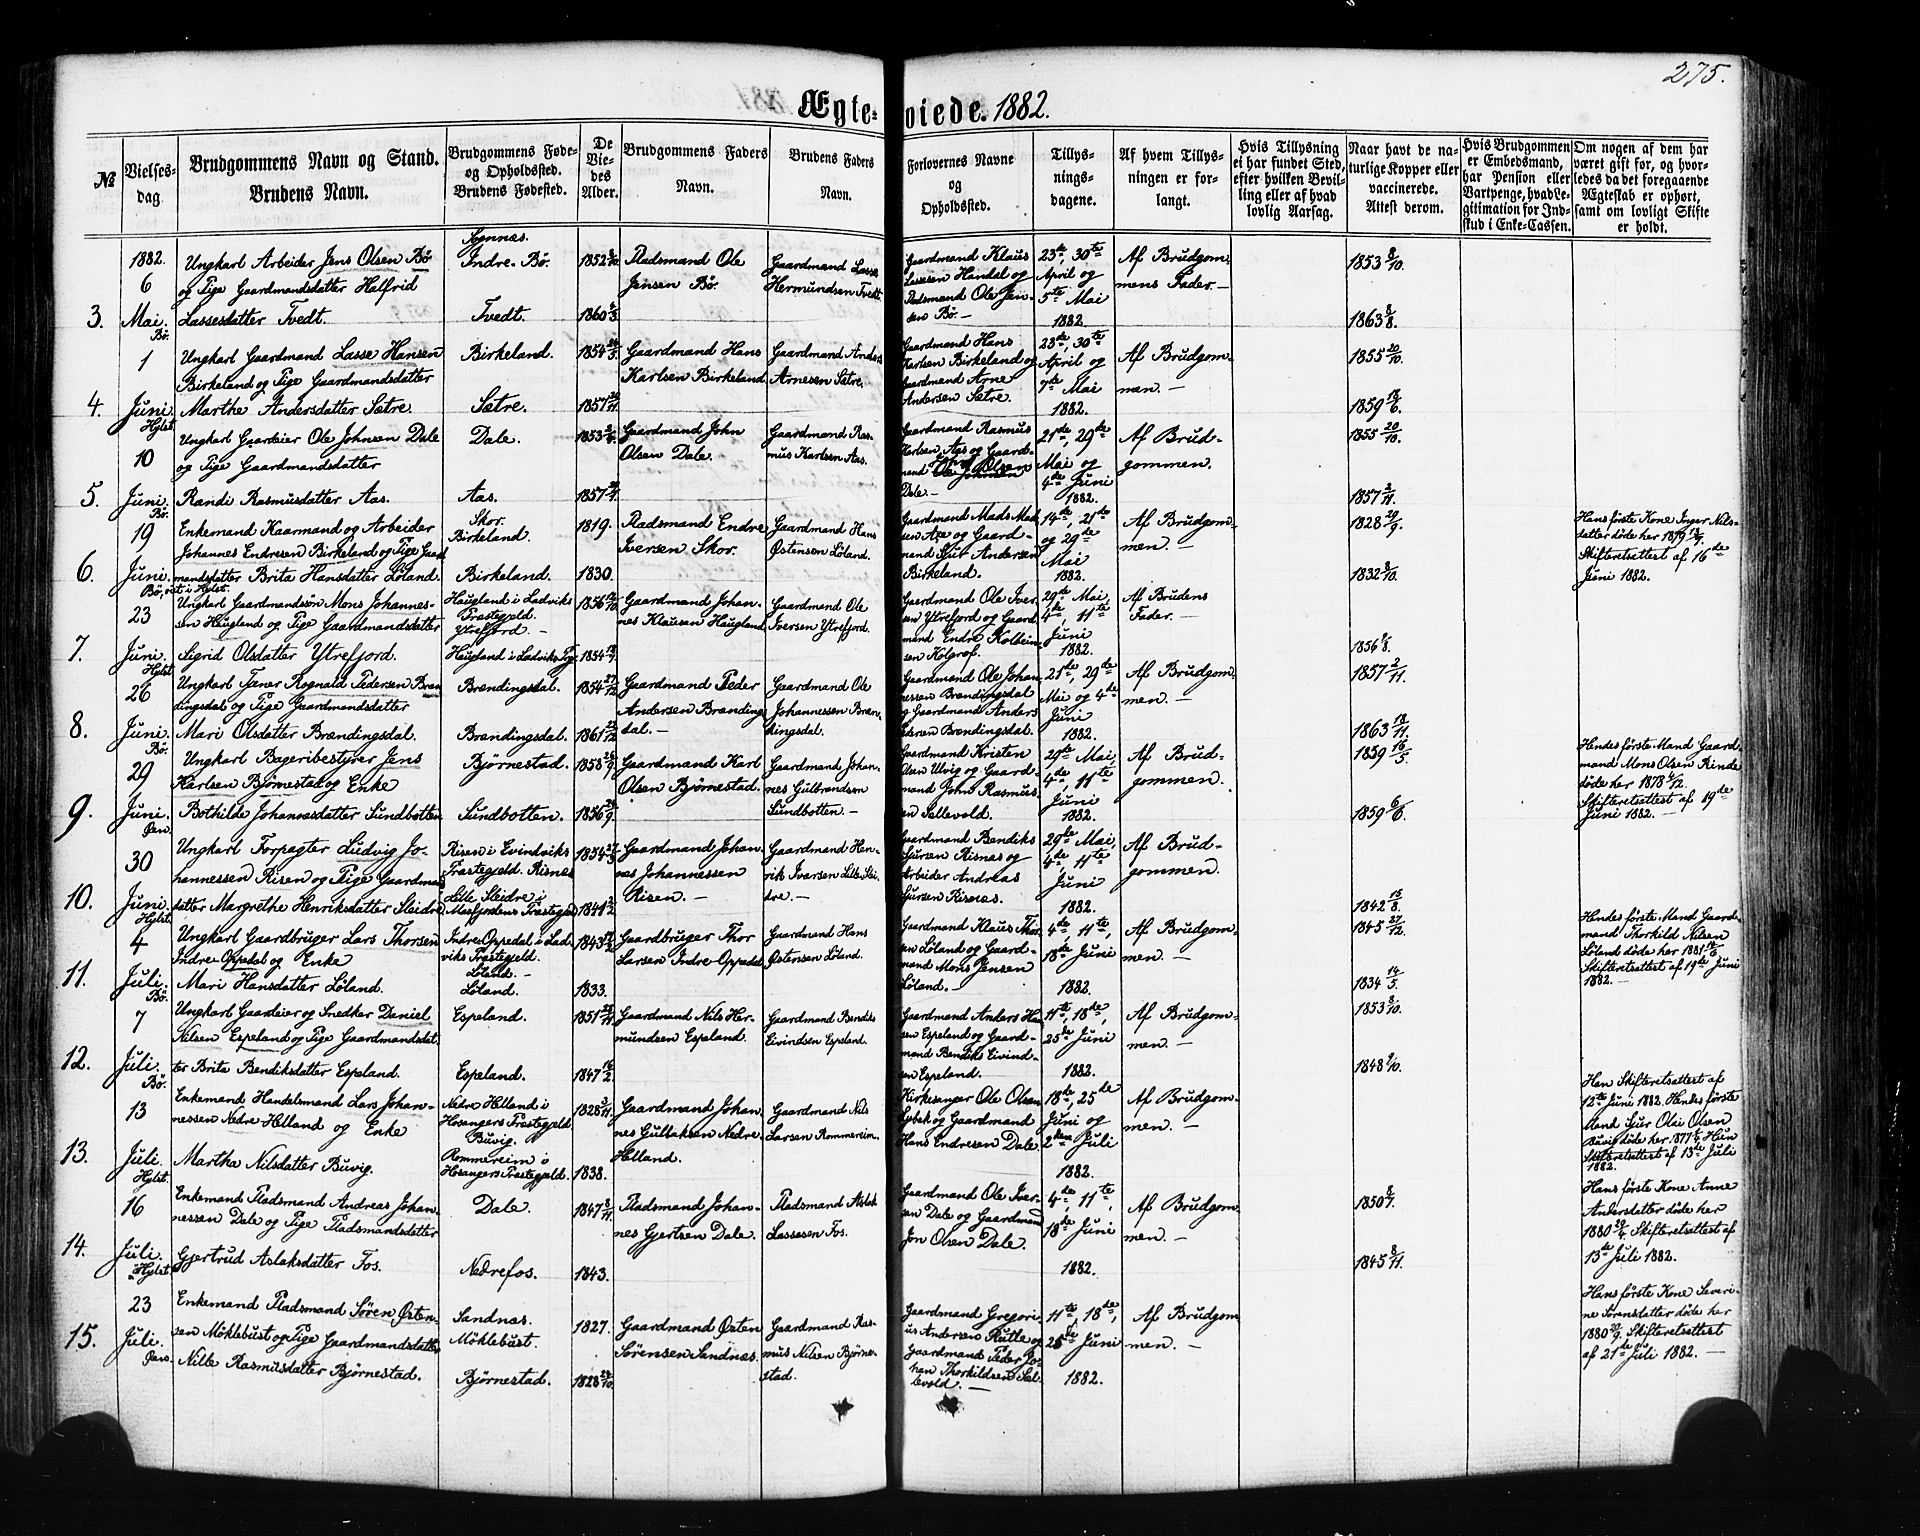 275.
Ægteviede. 1882.
№
Vielsesdag.
Brudgommens Navn og Stand.
Brudens Navn.
Brudgommens Føde- og Opholdssted.
Brudens Fødested.
De Viedes Alder.
Brudgommens Faders Navn.
Brudens Faders Navn.
Forlovernes Navne og Opholdssted.
Tillysningsdagene.
Af hvem Tillysningen er forlangt.
Hvis Tillysning ei har fundet Sted, efter hvilken Bevilling eller af hvad lovlig Aarsag.
Naar havt de naturlige Kopper eller vaccinerede. Attest derom.
Hvis Brudgommen er Embedsmand, har Pension eller Vartpenge, hvad Legitimation for Indskud i Enke-Cassen.
Om nogen af dem har været gift før, og hvorledes da det foregaaende Ægteskab er ophørt, samt om lovligt Skifte er holdt.
3.
1882. 6 Mai. Bø.
Ungkarl Arbeider Jens Olsen Bø
og Pige Gaardmandsdatter Halfrid
Lassesdatter Tvedt.
Sognnæs.
Indre Bø.
Tvedt.
1852
1860
Pladsmand Ole
Jensen Bø.
Gaardmand Lasse
Hermundsen Tvedt
Gaardmand Klaus
Lassesen Handal og
Pladsmand Ole Jensen Bø.
23de, 30te
April og
5te Mai
1882.
Af Brudgommens Fader.
1853 8/10.
1863 8/8.
4.
1 Juni. Hylst.
Ungkarl Gaardmand Lasse Hansen
Birkeland og Pige Gaardmandsdatter
Marthe Andersdatter Sætre.
Birkeland.
Sætre.
1854
1857
Gaardmand Hans
Karlsen Birkeland.
Gaardmand Anders
Arnesen Sætre.
Gaardmand Hans
Karlsen Birkeland og
Gaardmand Arne
Andersen Sætre.
23de, 30te
April og
7de Mai
1882.
Af Brudgommen.
1855 20/10.
1859 18/6.
5.
10 Juni. Bø.
Ungkarl Gaardeier Ole Johnsen Dale
og Pige Gaardmandsdatter
Randi Rasmusdatter Aas.
Dale.
Aas.
1853
1857
Gaardmand John
Olsen Dale.
Gaardmand Rasmus Karlsen Aas.
Gaardmand Rasmus
Karlsen Aas og Gaardmand
Dale.
21de, 29de
Mai og
4de Juni
1882.
Af Brudgommen.
1855 20/10.
1857 2/11.
6.
19 Juni.
Enkemand Kaarmand og Arbeider
Johannes Endresen Birkeland og Pige Gaardmandsdatter Brita Hansdatter Løland.
Skor.
Birkeland.
Birkeland.
1819.
1830.
Pladsmand Endre
Iversen Skor.
Gaardmand Hans
Østensen Løland.
Gaardmand Mads Madsen Axe og Gaardmand Sjur Andersen
Birkeland.
14de, 21de
og 29de
Mai
1882.
Af Brudgommen.
1828 29/9.
1832 8/10.
Hans første Kone Inger Nilsdatter døde her 1879
Skifteretsattest af 16de
Juni 1882.
7.
23 Juni. Hylst.
Ungkarl Gaardmandssøn Mons Johannessen Haugland og Pige Gaardmandsdatter
Sigrid Olsdatter Ytrefjord.
Haugland i Ladviks
Præstegjeld.
Ytrefjord.
Haugland i Ladviks Pg.
1856
1854
Gaardmand Johannes Klausen Haugland
Gaardmand Ole
Iversen Ytrefjord.
Gaardmand Ole Iversen Ytrefjord og Gaardmand Endre Kolbeinsen Kolgrof.
29de Mai,
4de, 11te
Juni
1882.
Af Brudens
Fader.
1856
8.
26 Juni. Bø.
Ungkarl Tjener Rognald Pedersen Brændingsdal og Pige Gaardmandsdatter
Mari Olsdatter Brændingsdal.
Brændingsdal.
Brændingsdal.
1854
1861
Gaardmand Peder
Andersen Brændingsdal.
Gaardmand Ole
Johannessen Brændingsdal.
Gaardmand Ole Johannessen Brændingsdal
og Gaardmand Anders
Brændingsdal.
21de, 29de
Mai og 4de
Juni
1882.
Af Brudgommen.
1857 2/11.
1863 18/11.
9.
29 Juni.
Ungkarl Bageribestyrer Jens
Karlsen Bjørnestad og Enke
Bothilde Johannesdatter Sundbotten
Bjørnestad.
Sundbotten.
1858
1856
Gaardmand Karl
Olsen Bjørnestad.
Gaardmand Johannes Gulbrandsen
Sundbotten.
Gaardmand Kristen
Olsen Ulvig og Gaardmand John Rasmussen Sellevold.
29de Mai,
4de, 11te
Juni
1882.
Af Brudgommen.
1859 16/5.
1859 6/6.
Hendes første Mand Gaardmand Mons Olsen Rinde
døde her 1878
Skifteretsattest af 19de
Juni 1882.
10.
30 Juni. Hylst.
Ungkarl Forpagter Ludvig Johannessen Risen og Pige Gaardmandsdatter Margrethe Henriksdatter Sleidre
Risen i Evindviks
Præstegjeld. Risnes
Lille Sleidre i
Masfjordens Præstegjeld
1854
1841
Gaardmand Johannes Johannessen
Risen.
Gaardmand Henrik Iversen Lille Sleidre.
Gaardmand Bendiks
Sjursen Risnæs og
Arbeider Andreas
Sjursen Risnæs.
29de Mai,
4de, 11te
Juni
1882.
Af Brudgommen.
1842 15/8.
11.
4 Juli. Bø.
Ungkarl Gaardbruger Lars Thorsen
Indre Oppedal og Enke
Mari Hansdatter Løland.
Indre Oppedal i Ladviks Præstegjeld.
Løland.
Løland.
1843
1833.
Gaardbruger Thor
Larsen Indre Oppedal
Gaardmand Hans
Østensen Løland.
Gaardmand Klaus Thorsen Løland og Gaardmand Mons Jensen
Løland.
4de, 11te,
18de Juni
1882.
Af Brudgommen.
1845 27/12.
1834 14/5.
Hendes første Mand Gaardmand Thorkild Nilsen
Løland døde her 1881
Skifteretsattest af 19de Juni
1882.
12.
7 Juli. Bø.
Ungkarl Gaardeier og Snedker Daniel
Nilsen Espeland og Pige Gaardmandsdatter Brita Bendiksdatter Espeland.
Espeland.
Espeland.
1851
1847 16/2.
Gaardmand Nils Hermundsen Espeland.
Gaardmand Bendiks
Eivindsen Espeland.
Gaardmand Anders Hansen Espeland og Gaardmand Bendiks Eivindsen Espeland.
11te, 18de,
25de Juni
1882.
Af Brudgommen.
1853 8/10.
1848 9/10.
13.
13 Juli. Hylst.
Enkemand Handelsmand Lars Johannessen Nedre Helland og Enke
Martha Nilsdatter Buvig.
Nedre Helland i
Hosangers Præstegjeld
Buvig.
Rommereim i
Hosangers Præstegjeld.
1828
1838.
Gaardmand Johannes Gulbaksen Nedre
Helland.
Gaardmand Nils
Larsen Rommereim.
Kirkesanger Ole Olsen
Lybæk og Gaardmand
Hans Endresen Dale.
18de, 25de
Juni og
2den Juli
1882.
Af Brudgommen.
Han Skifteretsattest af
12te Juni 1882. Hendes første
Mand Sjur Olai Olsen
Buvig døde her 1877 Hun
Skifteretsattest af 13de Juli
1882.
14.
16 Juli. Hylst.
Enkemand Pladsmand Andreas Johannessen Dale og Pige Pladsmandsdatter
Gjertrud Aslaksdatter Fos.
Dale.
Nedrefos.
1847
1843.
Pladsmand Johannes Gjertsen Dale.
Pladsmand Aslak
Lassesen Fos.
Gaardmand Ole Iversen Dale og Gaardmand
Jon Olsen Dale.
4de, 11te,
18de Juni
1882.
Af Brudgommen.
1850 8/7.
1845 8/11.
Hans første Kone Anne
Andersdatter døde her
1880 Skifteretsattest af
13de Juli 1882.
15.
23 Juli.
Enkemand Pladsmand Søren Østensen Møklebust og Pige Gaardmandsdatter
Nille Rasmusdatter Bjørnestad.
Sandnæs.
Møklebust.
Bjørnestad.
1827.
1828
Gaardmand Østen
Sørensen Sandnæs.
Gaardmand Rasmus Nilsen Bjørnestad.
Gaardmand Gregorius Andersen Rutle og
Gaardmand Peder Johan Thorkildsen Sellevold.
11te, 18de,
25de Juni
1882.
Af Brudgommen.
Hans første Kone Severine Sørensdatter døde her
1880 Skifteretsattest
af 21de Juli 1882.